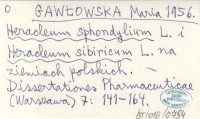 O GAWŁOWSKA Maria 1956.
Heracleum sphondylium L. i
Heracleum sibiricum L. na
ziemiach polskich. –
Dissertationes Pharmaceuticae
(Warszawa) 7: 141-164.
BT/010/0954